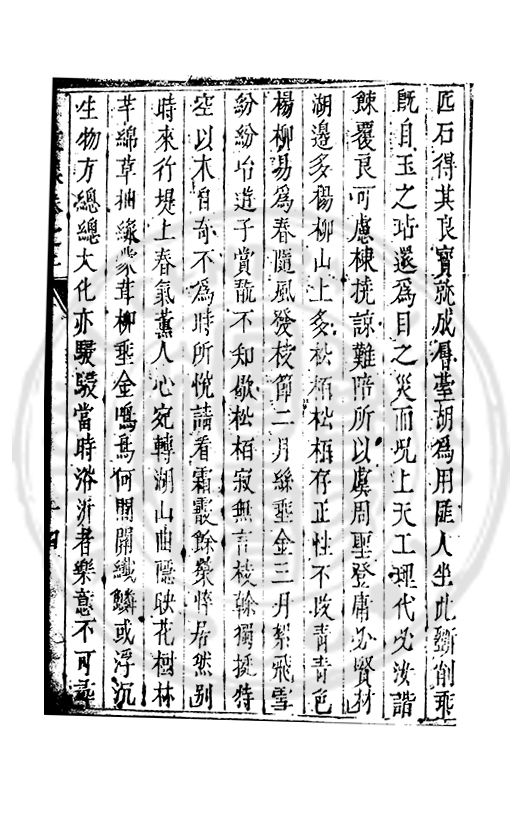 匠石得其良實就成厝臺胡爲用匪人坐此斵削乖
旣自玉之玷還爲目之災而况上天工理代必汝諧
餗覆良可慮棟撓諒難陪所以虞周聖登庸必賢材
湖邊多楊柳山上多松栢松栢存正性不改青青色
楊柳易爲春隨風發枝節二月絲垂金三月絮飛雪
紛紛冶遊子賞翫不知歇松栢寂無言枝榦獨挺特
空以木自奇不爲時所悅請看霜霰餘榮悴居然別
時來行堤上春氣薰人心宛轉湖山曲隱映花樹林
芊綿草抽綠蒙茸柳垂金鳴鳥何關關纖鱗或浮沉
生物方總總大化亦駸駸當時浴沂者樂意不可
卷之
十四